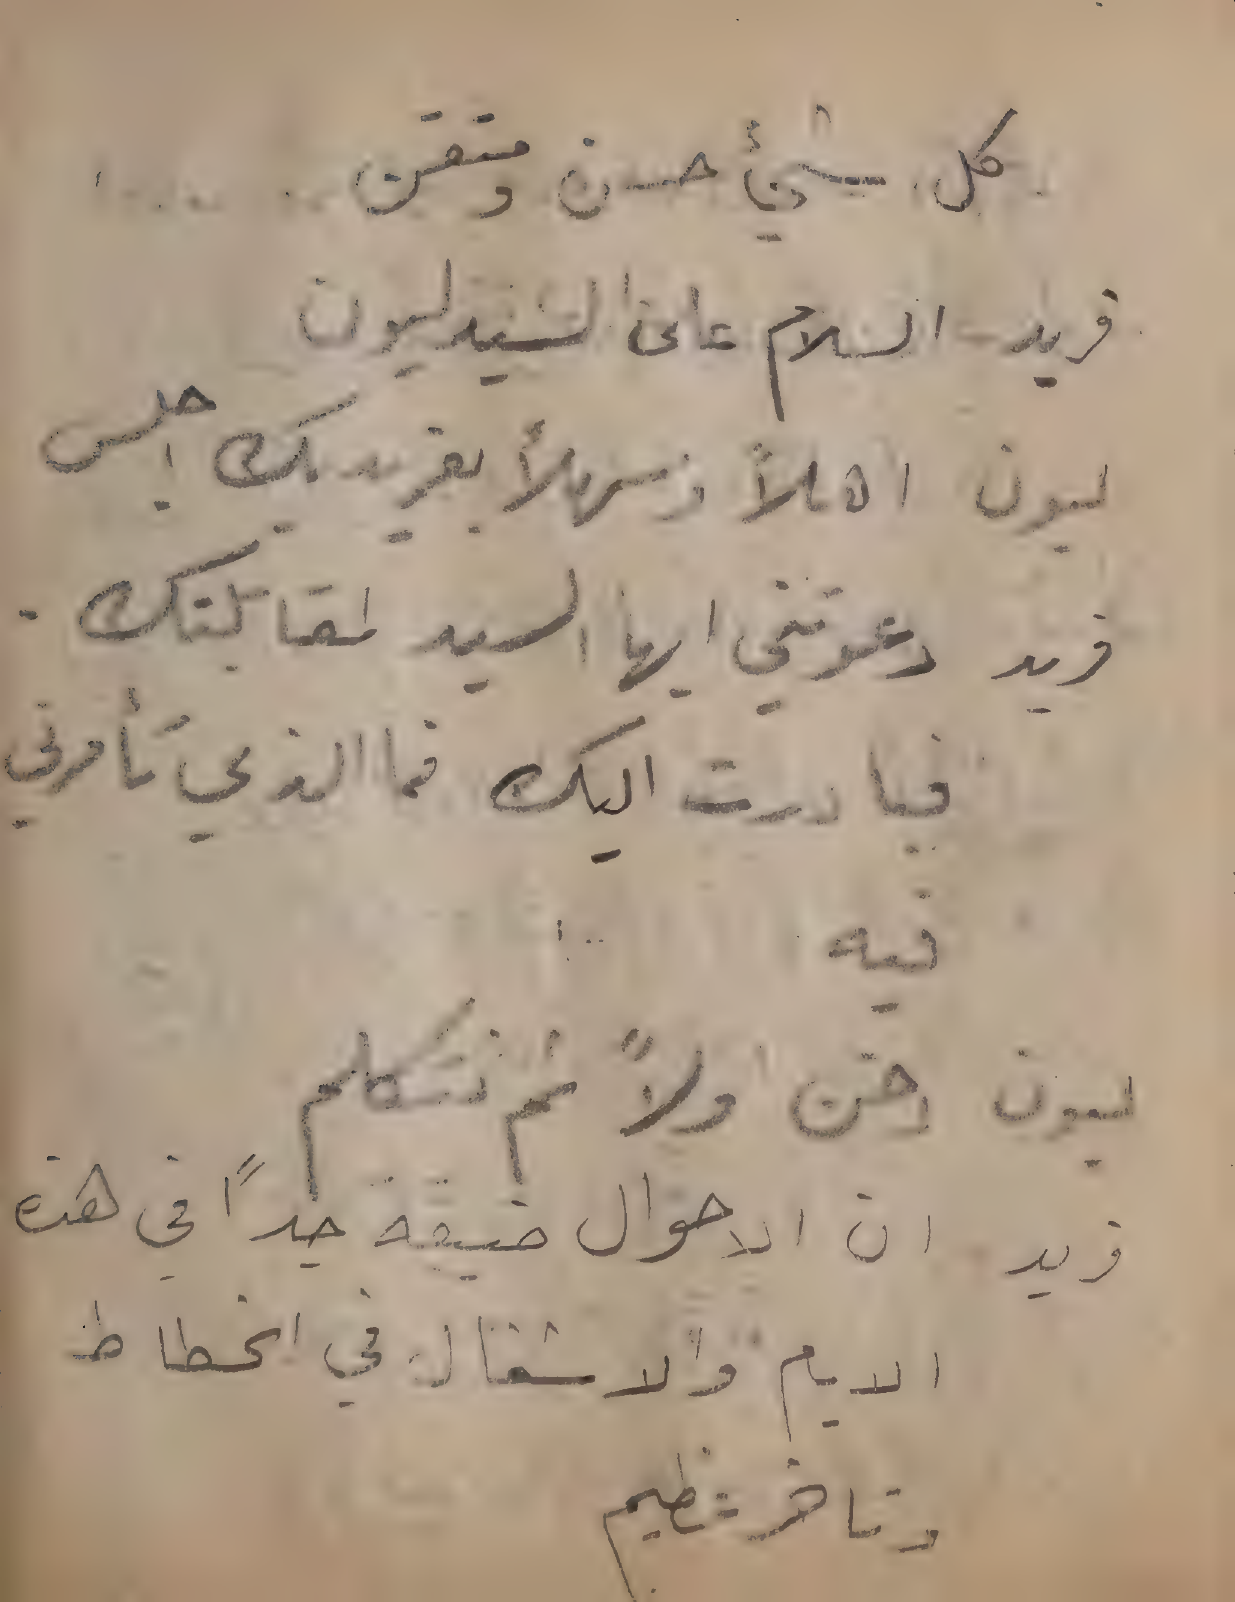 كل شيئ حسن ومتقن
فريد - السلام على السيد ليون
ليون اهلاً وسهلاً بفريد بك اجلس
فريد دعوتني ايها السيد لمقابلتك .
فبادرت اليك فما الذي تأمرني
فيه
ليون دخن اولاً ثم نتكلم
فريد ان الاحوال ضيقة جداً في هذه
الايام والاشغال في انحطاط
وتاخر عظيم